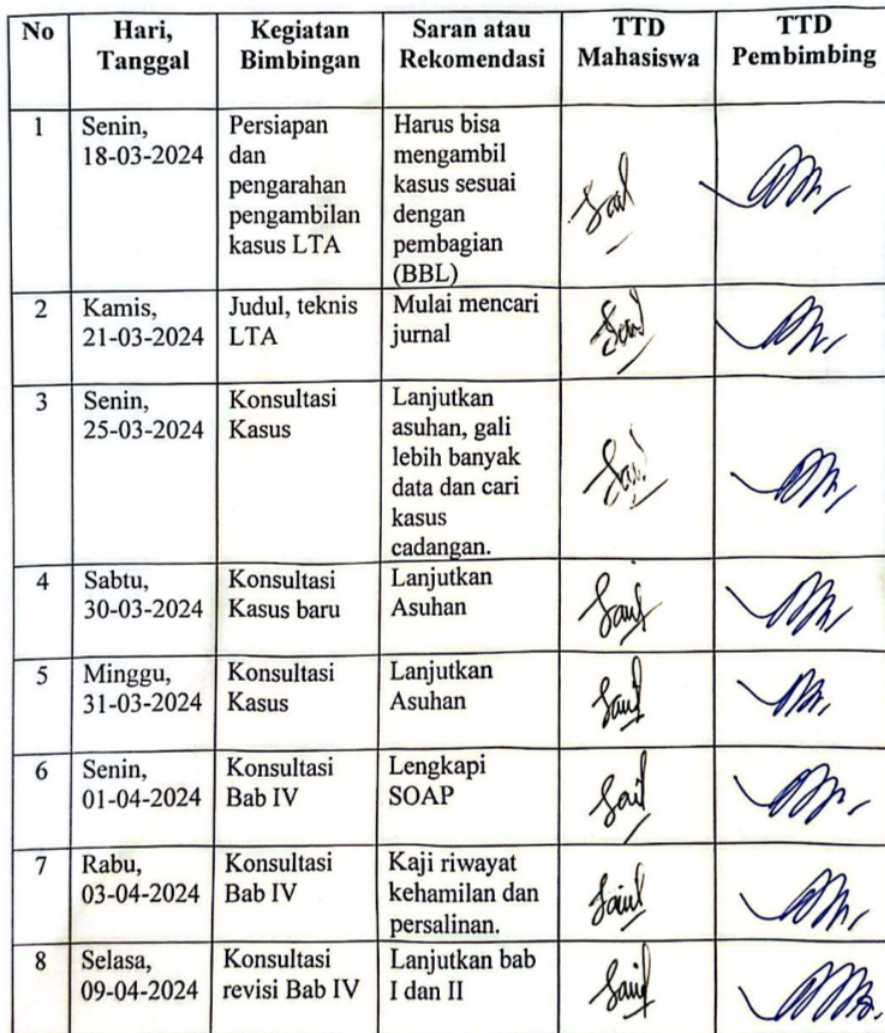 No Hari, Tanggal Kegiatan Bimbingan Saran atau Rekomendasi TTD Mahasiswa TTD Pembimbing
1 Senin, 18-03-2024 Persiapan dan pengarahan pengambilan kasus LTA Harus bisa mengambil kasus sesuai dengan pembagian (BBL)
2 Kamis, 21-03-2024 Judul, teknis LTA Mulai mencari jurnal
3 Senin, 25-03-2024 Konsultasi Kasus Lanjutkan asuhan, gali lebih banyak data dan cari kasus cadangan.
4 Sabtu, 30-03-2024 Konsultasi Kasus baru Lanjutkan Asuhan
5 Minggu, 31-03-2024 Konsultasi Kasus Lanjutkan Asuhan
6 Senin, 01-04-2024 Konsultasi Bab IV Lengkapi SOAP
7 Rabu, 03-04-2024 Konsultasi Bab IV Kaji riwayat kehamilan dan persalinan.
8 Selasa, 09-04-2024 Konsultasi revisi Bab IV Lanjutkan bab I dan II